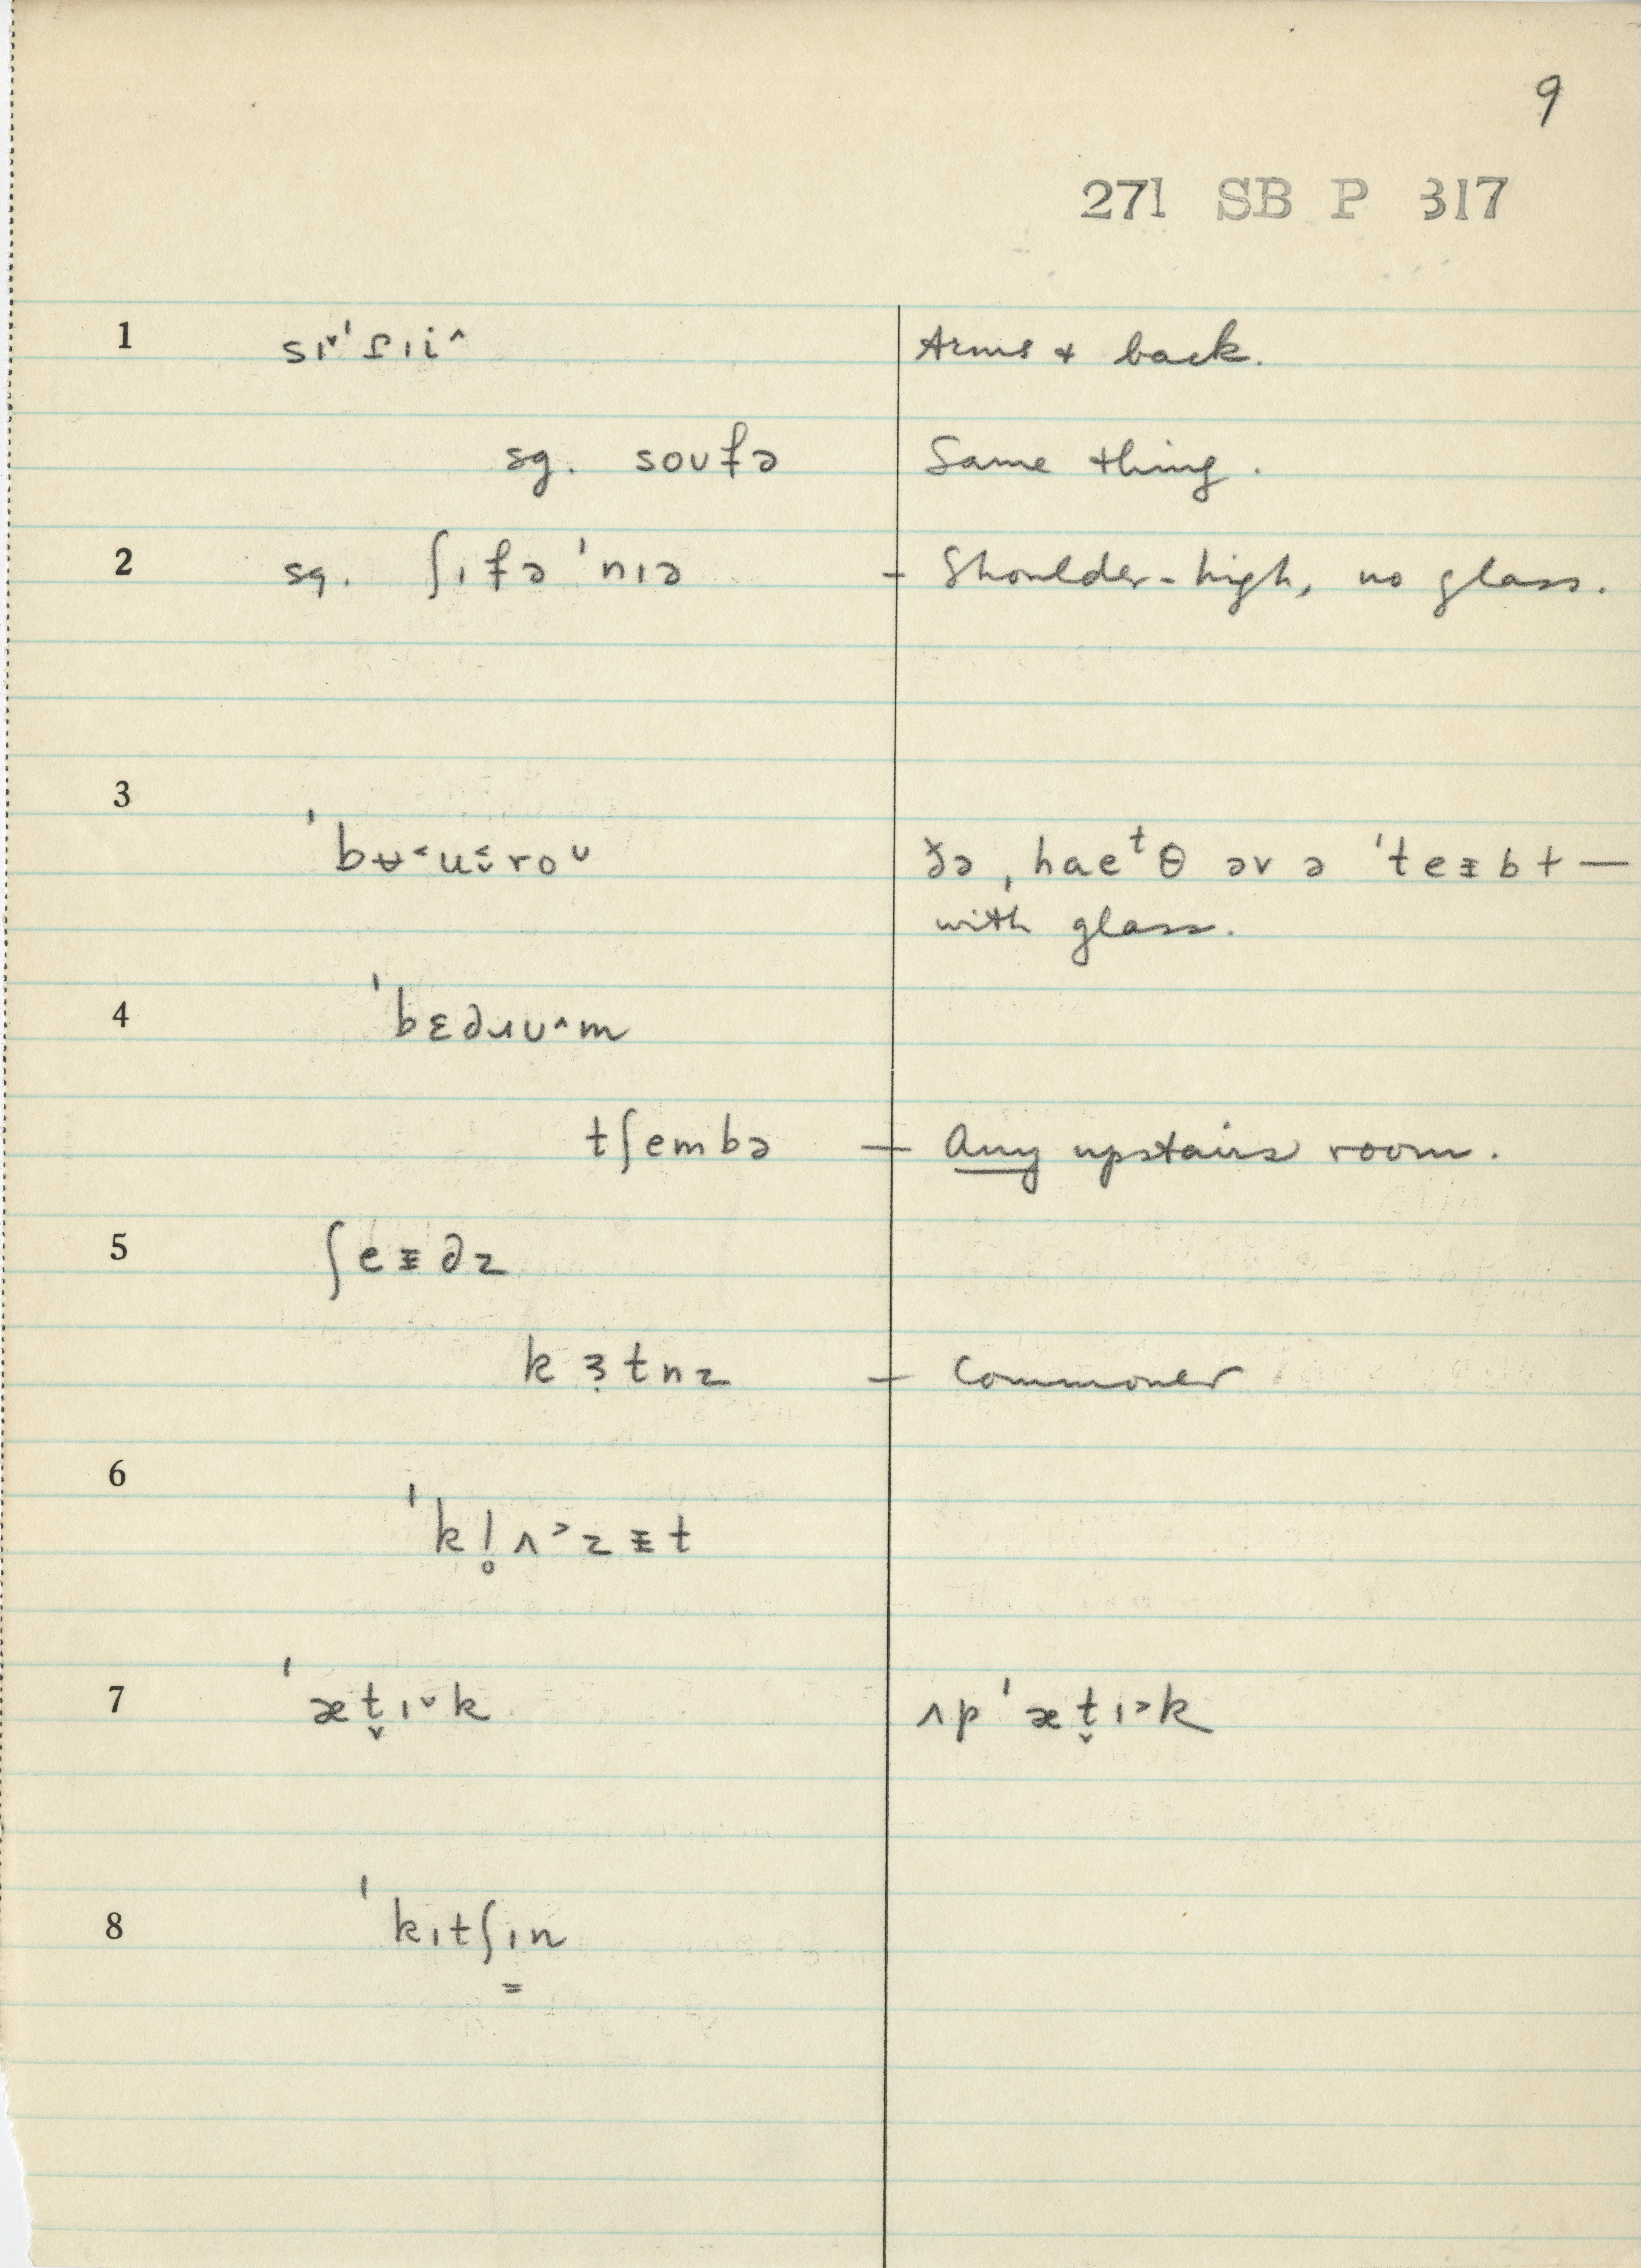 9
271 SB P 317
1 sɪ˅'ʆɪi^ Arms & back.
sg. soʊɫə Same thing.
2 sg. ʃɪɫə'nɪə - Shoulder-high, no glass.
3 'bʉ˂u˂̬roᵕ ðə ˌhaeᵗθ əv ə 'teᵻbt —
with glass.
4 'bɛdɹʊ^m
tʃembə — Any upstairs room.
5 ʃeᵻdz
kɜ̣tnz — Commoner
6 'kl̥ʌ˃zᵻt
7 'æt̬ɪ˅k ʌp'æt̬ɪ˃k
8 'kɪtʃɪ̳n